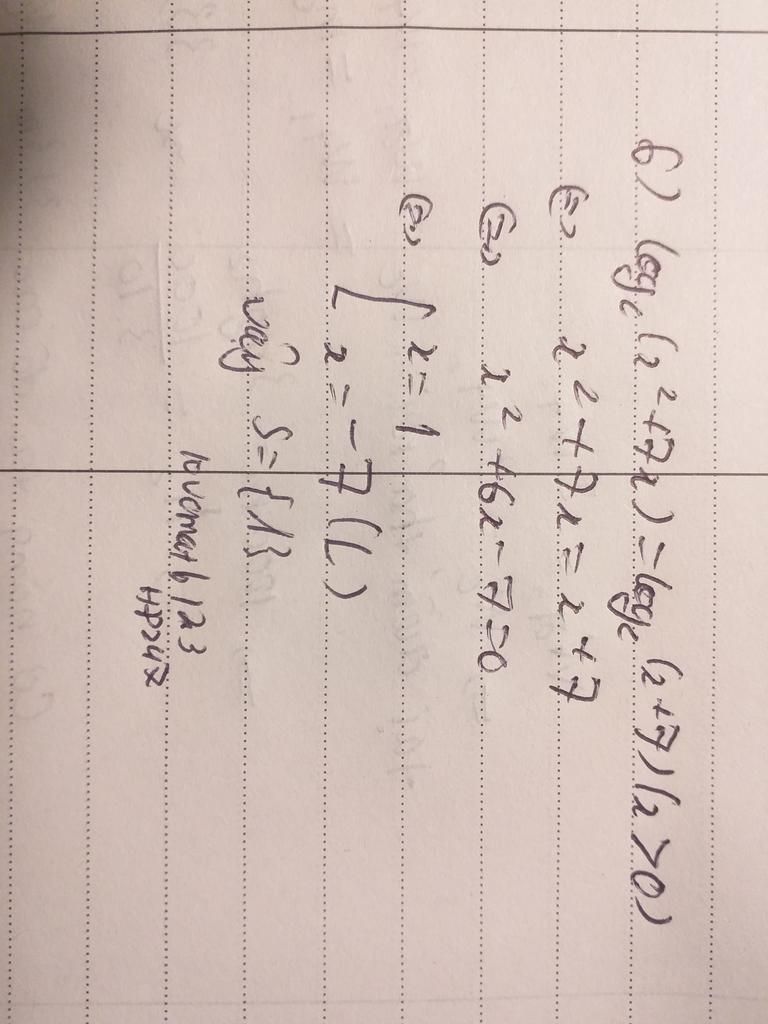 b) log₂(x²+7x)=log₂(x+7)(x>0)
⇔ x²+7x=x+7
⇔ x²+6x-7=0
⇔ [ x=1
x=-7(L)
Vậy S={1}
lovemath123
HP247